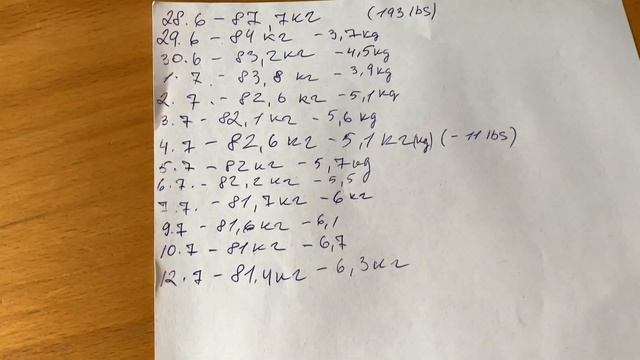 28.6 – 87,7кг (193 lbs)
29.6 – 84 кг – 3,7kg
30.6 – 83,2кг – 4,5kg
1.7. – 83,8 кг – 3,9kg
2.7. – 82,6 кг – 5,1kg
3.7 – 82,1 кг – 5,6 kg
4.7 – 82,6 кг – 5,1 кг(kg) (– 11 lbs)
5.7 – 82 кг – 5,7kg
6.7. – 82,2 кг – 5,5
7.7. – 81,7кг – 6 кг
9.7 – 81,6 кг – 6,1
10.7 – 81 кг – 6,7
12.7 – 81.4кг – 6,3кг